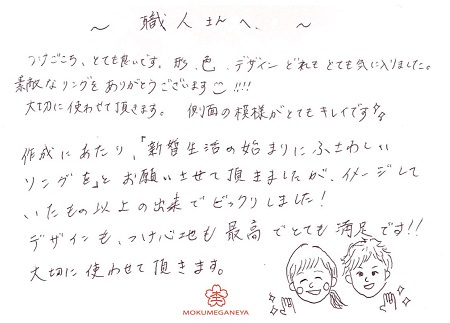 ～ 職人さんへ. ～
つけごこち、とても良いです。形、色、デザイン どれも とても気に入りました。
素敵なリングを ありがとうございます!!!!
大切に使わせて頂きます。 側面の模様がとてもキレイです
作成にあたり、『新婚生活の始まりにふさわしい
リングを』と お願いさせて頂きましたが、イメージして
いたもの以上の出来でビックリしました!
デザインも、つけ心地も 最高でとても 満足です!!
大切に使わせて頂きます。
MOKUMEGANEYA